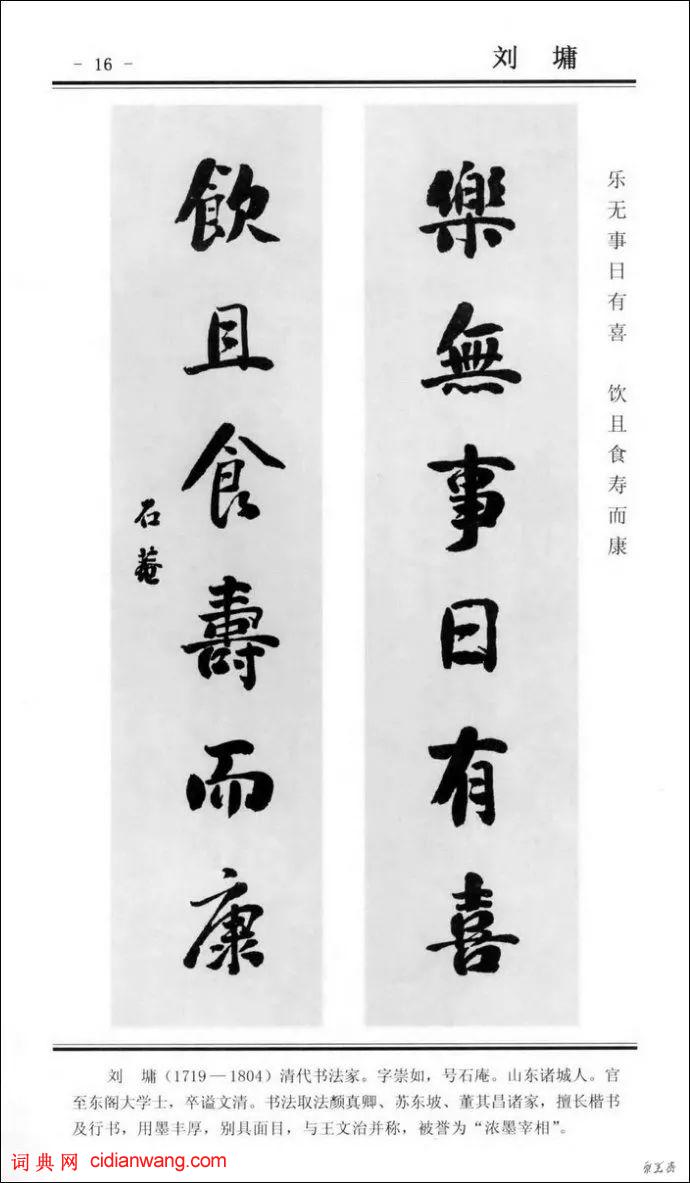 - 16 -
刘 墉
樂無事日有喜
飲且食壽而康
石菴
乐无事日有喜 饮且食寿而康
刘 墉（1719－1804）清代书法家。字崇如，号石庵。山东诸城人。官
至东阁大学士，卒谥文清。书法取法颜真卿、苏东坡、董其昌诸家，擅长楷书
及行书，用墨丰厚，别具面目，与王文治并称，被誉为“浓墨宰相”。
词典网 cidianwang.com